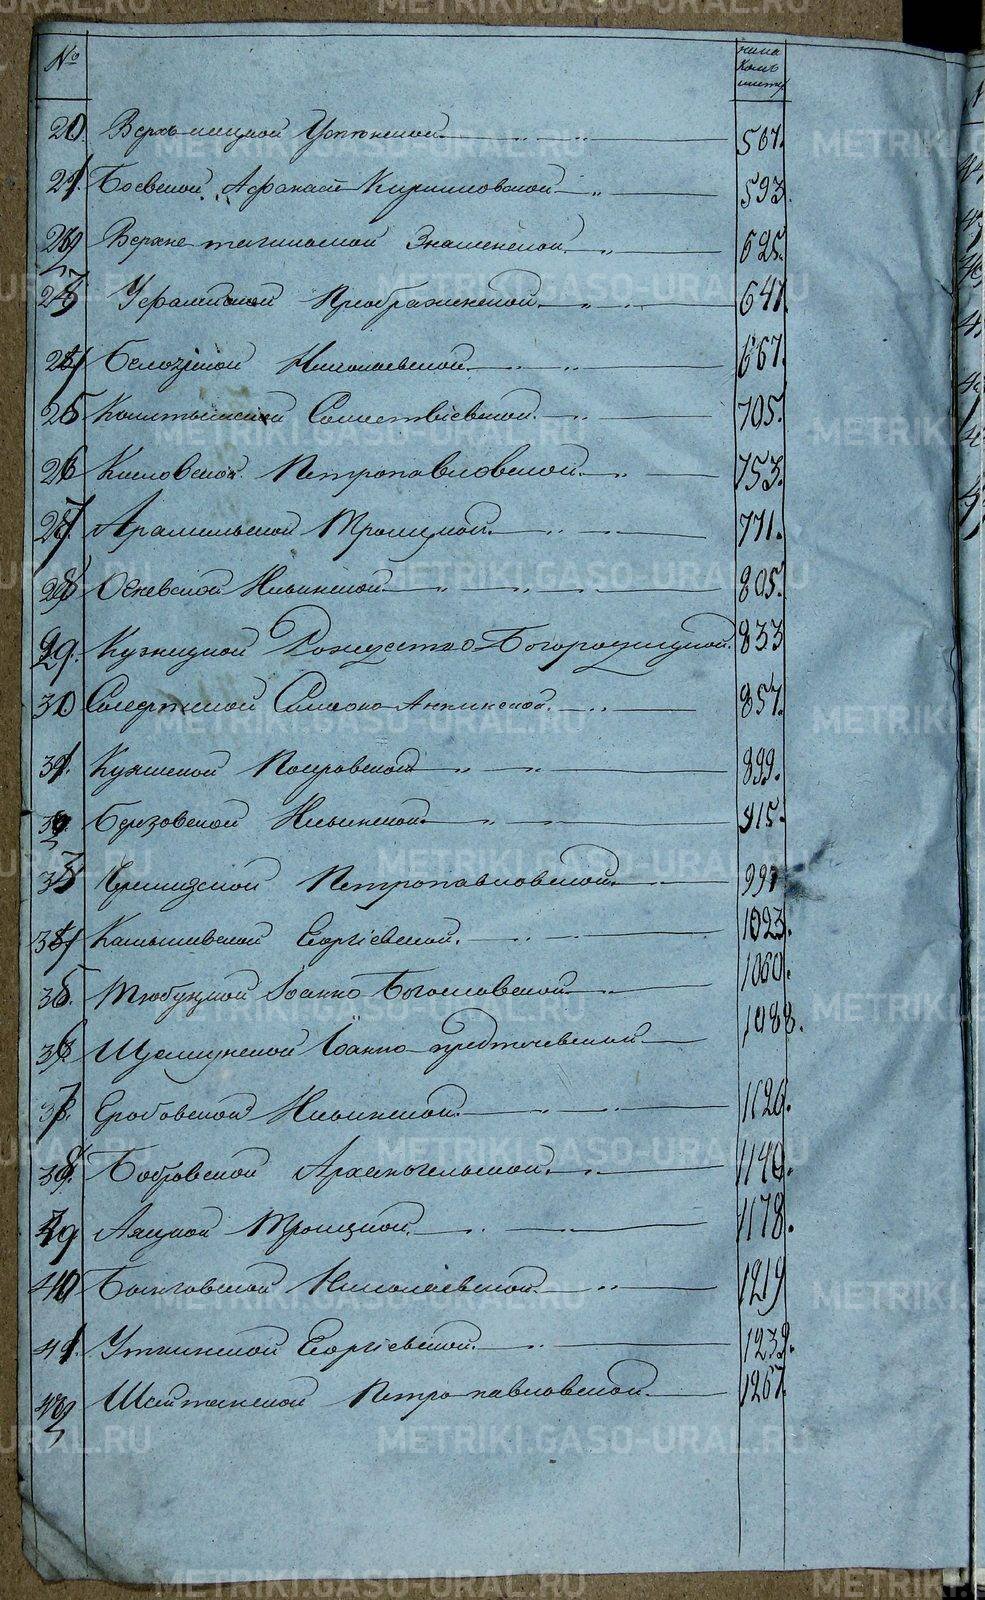 №
20 Верхъ-ницкой Успенской 567.
21. Боевской Афанасіе Кирилловской 593.
22 Верхне тагильской Знаменской 625.
23 Уфалейской Преображенской 641.
24 Белоярской Николаевской 667.
25 Колтышской Сошествіевской 705.
26 Кисловской Петропавловской 753.
27. Арамильской Троицкой 771.
28 Огневской Ильинской 805.
29. Кузнецкой Рождество-Богородицкой 833
30 Симеоно-Аннинской 857.
31. Куяшской Покровской 899.
32 Березовской Ильинской 915.
33 Черемисской Петропавловской 997
34 Камышевской Георгіевской. 1023.
35. Тюбукской Іоанно-Богословской 1060.
36. Щелкунской Іоанно-предтечевской 1088.
37. Грабовской Ильинской 1126.
38. Бобровской Архангельской. 1140.
39 Аяцкой Троицкой 1178.
40 Быньговской Николаевской 1219
41. Уткинской Георгіевской 1239.
42 Шайтанской Петропавловской 1267.
METRIKI.GASO-URAL.RU